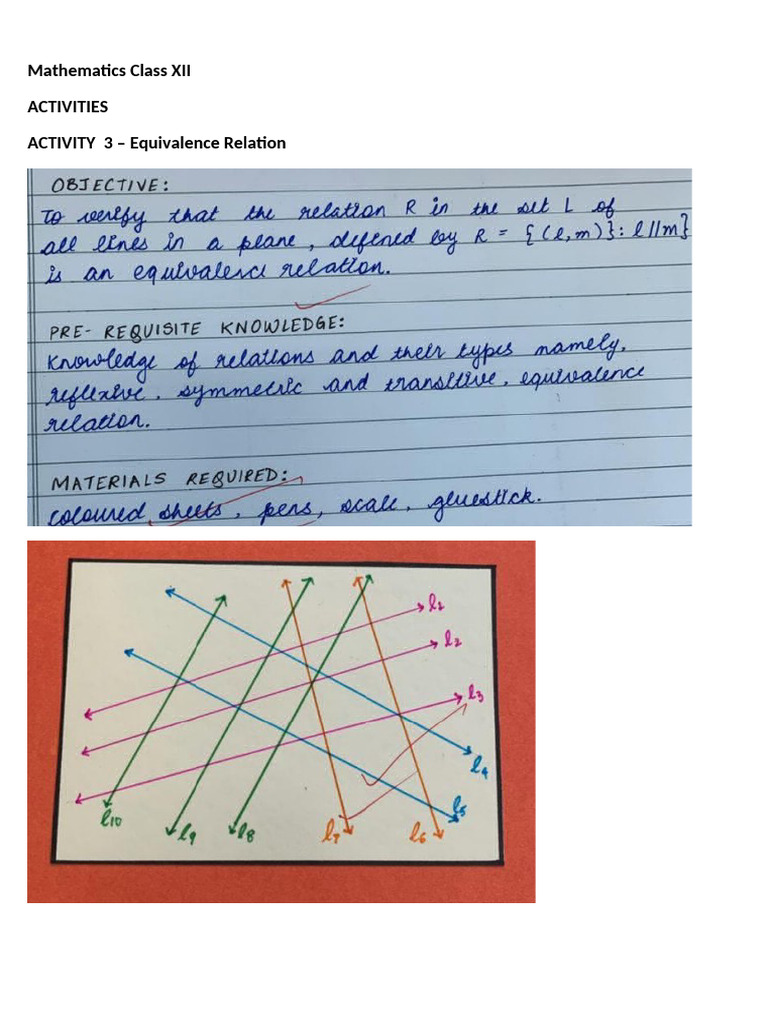 Mathematics Class XII
ACTIVITIES
ACTIVITY 3 – Equivalence Relation
OBJECTIVE:
To verify that the relation R in the set L of
all lines in a plane, defined by R = {(l,m)}: l//m}
is an equivalence relation.
PRE-REQUISITE KNOWLEDGE:
Knowledge of relations and their types namely,
reflexive, symmetric and transitive, equivalence
relation.
MATERIALS REQUIRED:
coloured sheets, pens, scale, gluestick.
l1
l2
l3
l4
l5
l10
l9
l8
l7
l6